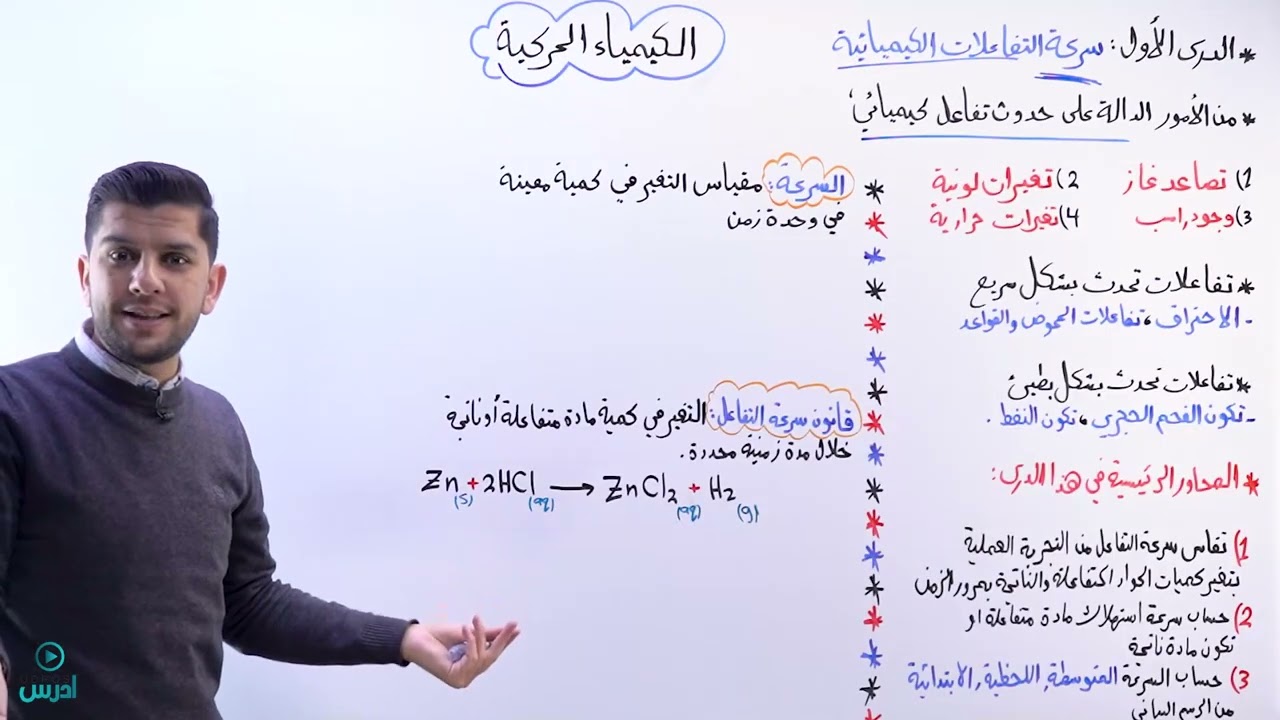 الكيمياء الحركية
* الدرس الأول: سرعة التفاعلات الكيميائية
* من الأمور الدالة على حدوث تفاعل كيميائي:
1) تصاعد غاز 2) تغيرات لونية
3) وجود راسب 4) تغيرات حرارية
* تفاعلات تحدث بشكل سريع
- الاحتراق، تفاعلات الحموض والقواعد
* تفاعلات تحدث بشكل بطيئ
- تكون الفحم الحجري، تكون النفط.
* المحاور الرئيسية في هذا الدرس:
1) تقاس سرعة التفاعل من التجربة العملية
بتغير كميات المواد المتفاعلة والناتجة بمرور الزمن
2) حساب سرعة استهلاك مادة متفاعلة او
تكون مادة ناتجة
3) حساب السرعة المتوسطة, اللحظية, الابتدائية
من الرسم البياني
السرعة: مقياس التغير في كمية معينة
في وحدة زمن
قانون سرعة التفاعل: التغير في كمية مادة متفاعلة أو ناتجة
خلال مدة زمنية محددة.
Zn(s) + 2HCl(aq) → ZnCl2(aq) + H2(g)
ادرس